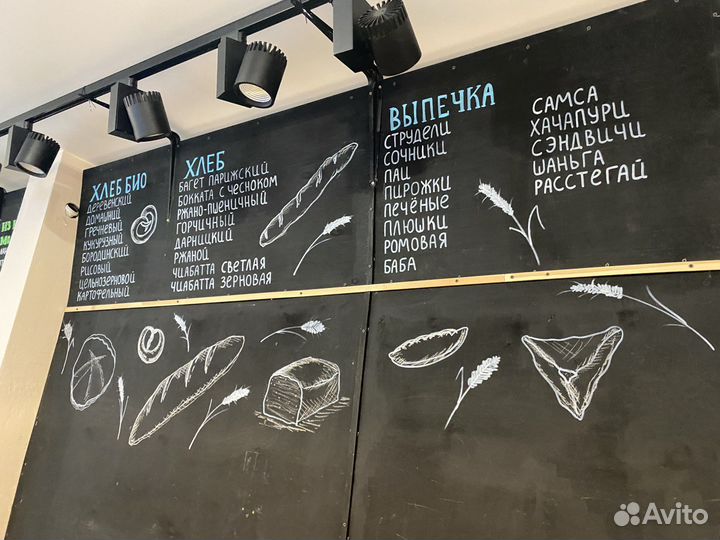 ХЛЕБ БИО
ДЕРЕВЕНСКИЙ
ДОМАШНИЙ
ГРЕЧНЕВЫЙ
КУКУРУЗНЫЙ
БОРОДИНСКИЙ
РИСОВЫЙ
ЦЕЛЬНОЗЕРНОВОЙ
КАРТОФЕЛЬНЫЙ
ХЛЕБ
БАГЕТ ПАРИЖСКИЙ
БОККАТА С ЧЕСНОКОМ
РЖАНО-ПШЕНИЧНЫЙ
ГОРЧИЧНЫЙ
ДАРНИЦКИЙ
РЖАНОЙ
ЧИАБАТТА СВЕТЛАЯ
ЧИАБАТТА ЗЕРНОВАЯ
ВЫПЕЧКА
СТРУДЕЛИ
СОЧНИКИ
ПАИ
ПИРОЖКИ
ПЕЧЁНЫЕ
ПЛЮШКИ
РОМОВАЯ
БАБА
САМСА
ХАЧАПУРИ
СЭНДВИЧИ
ШАНЬГА
РАССТЕГАЙ
Avito